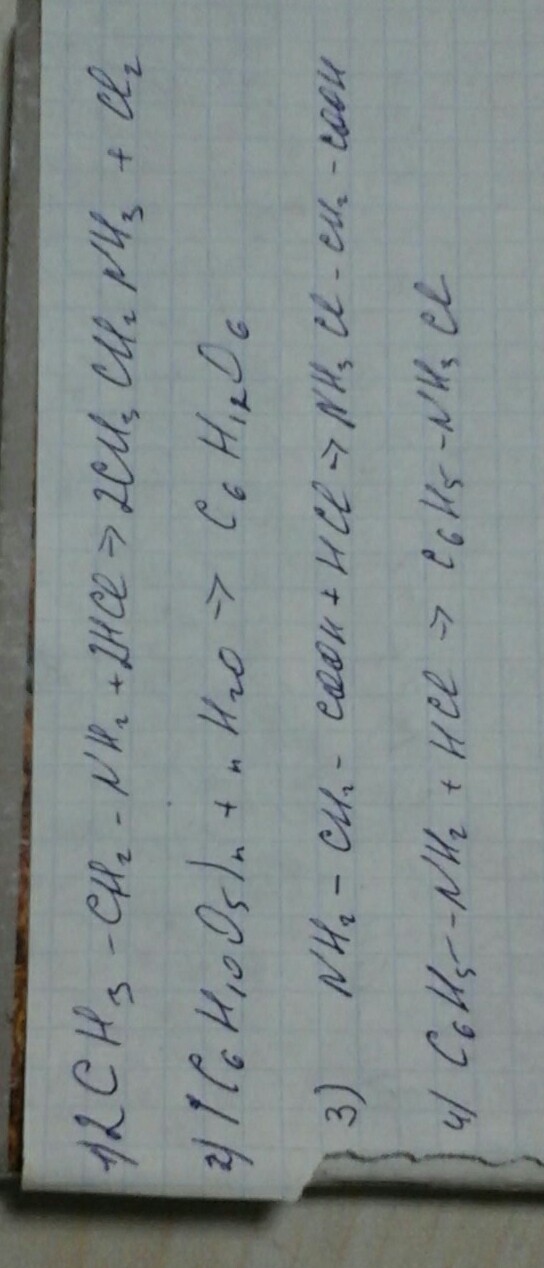 1) 2CH₃-CH₂-NH₂+2HCl→2CH₃CH₂NH₃+Cl₂
2) (C₆H₁₀O₅)n+nH₂O→C₆H₁₂O₆
3) NH₂-CH₂-COOH+HCl→NH₃Cl-CH₂-COOH
4) C₆H₅-NH₂+HCl→C₆H₅-NH₃Cl